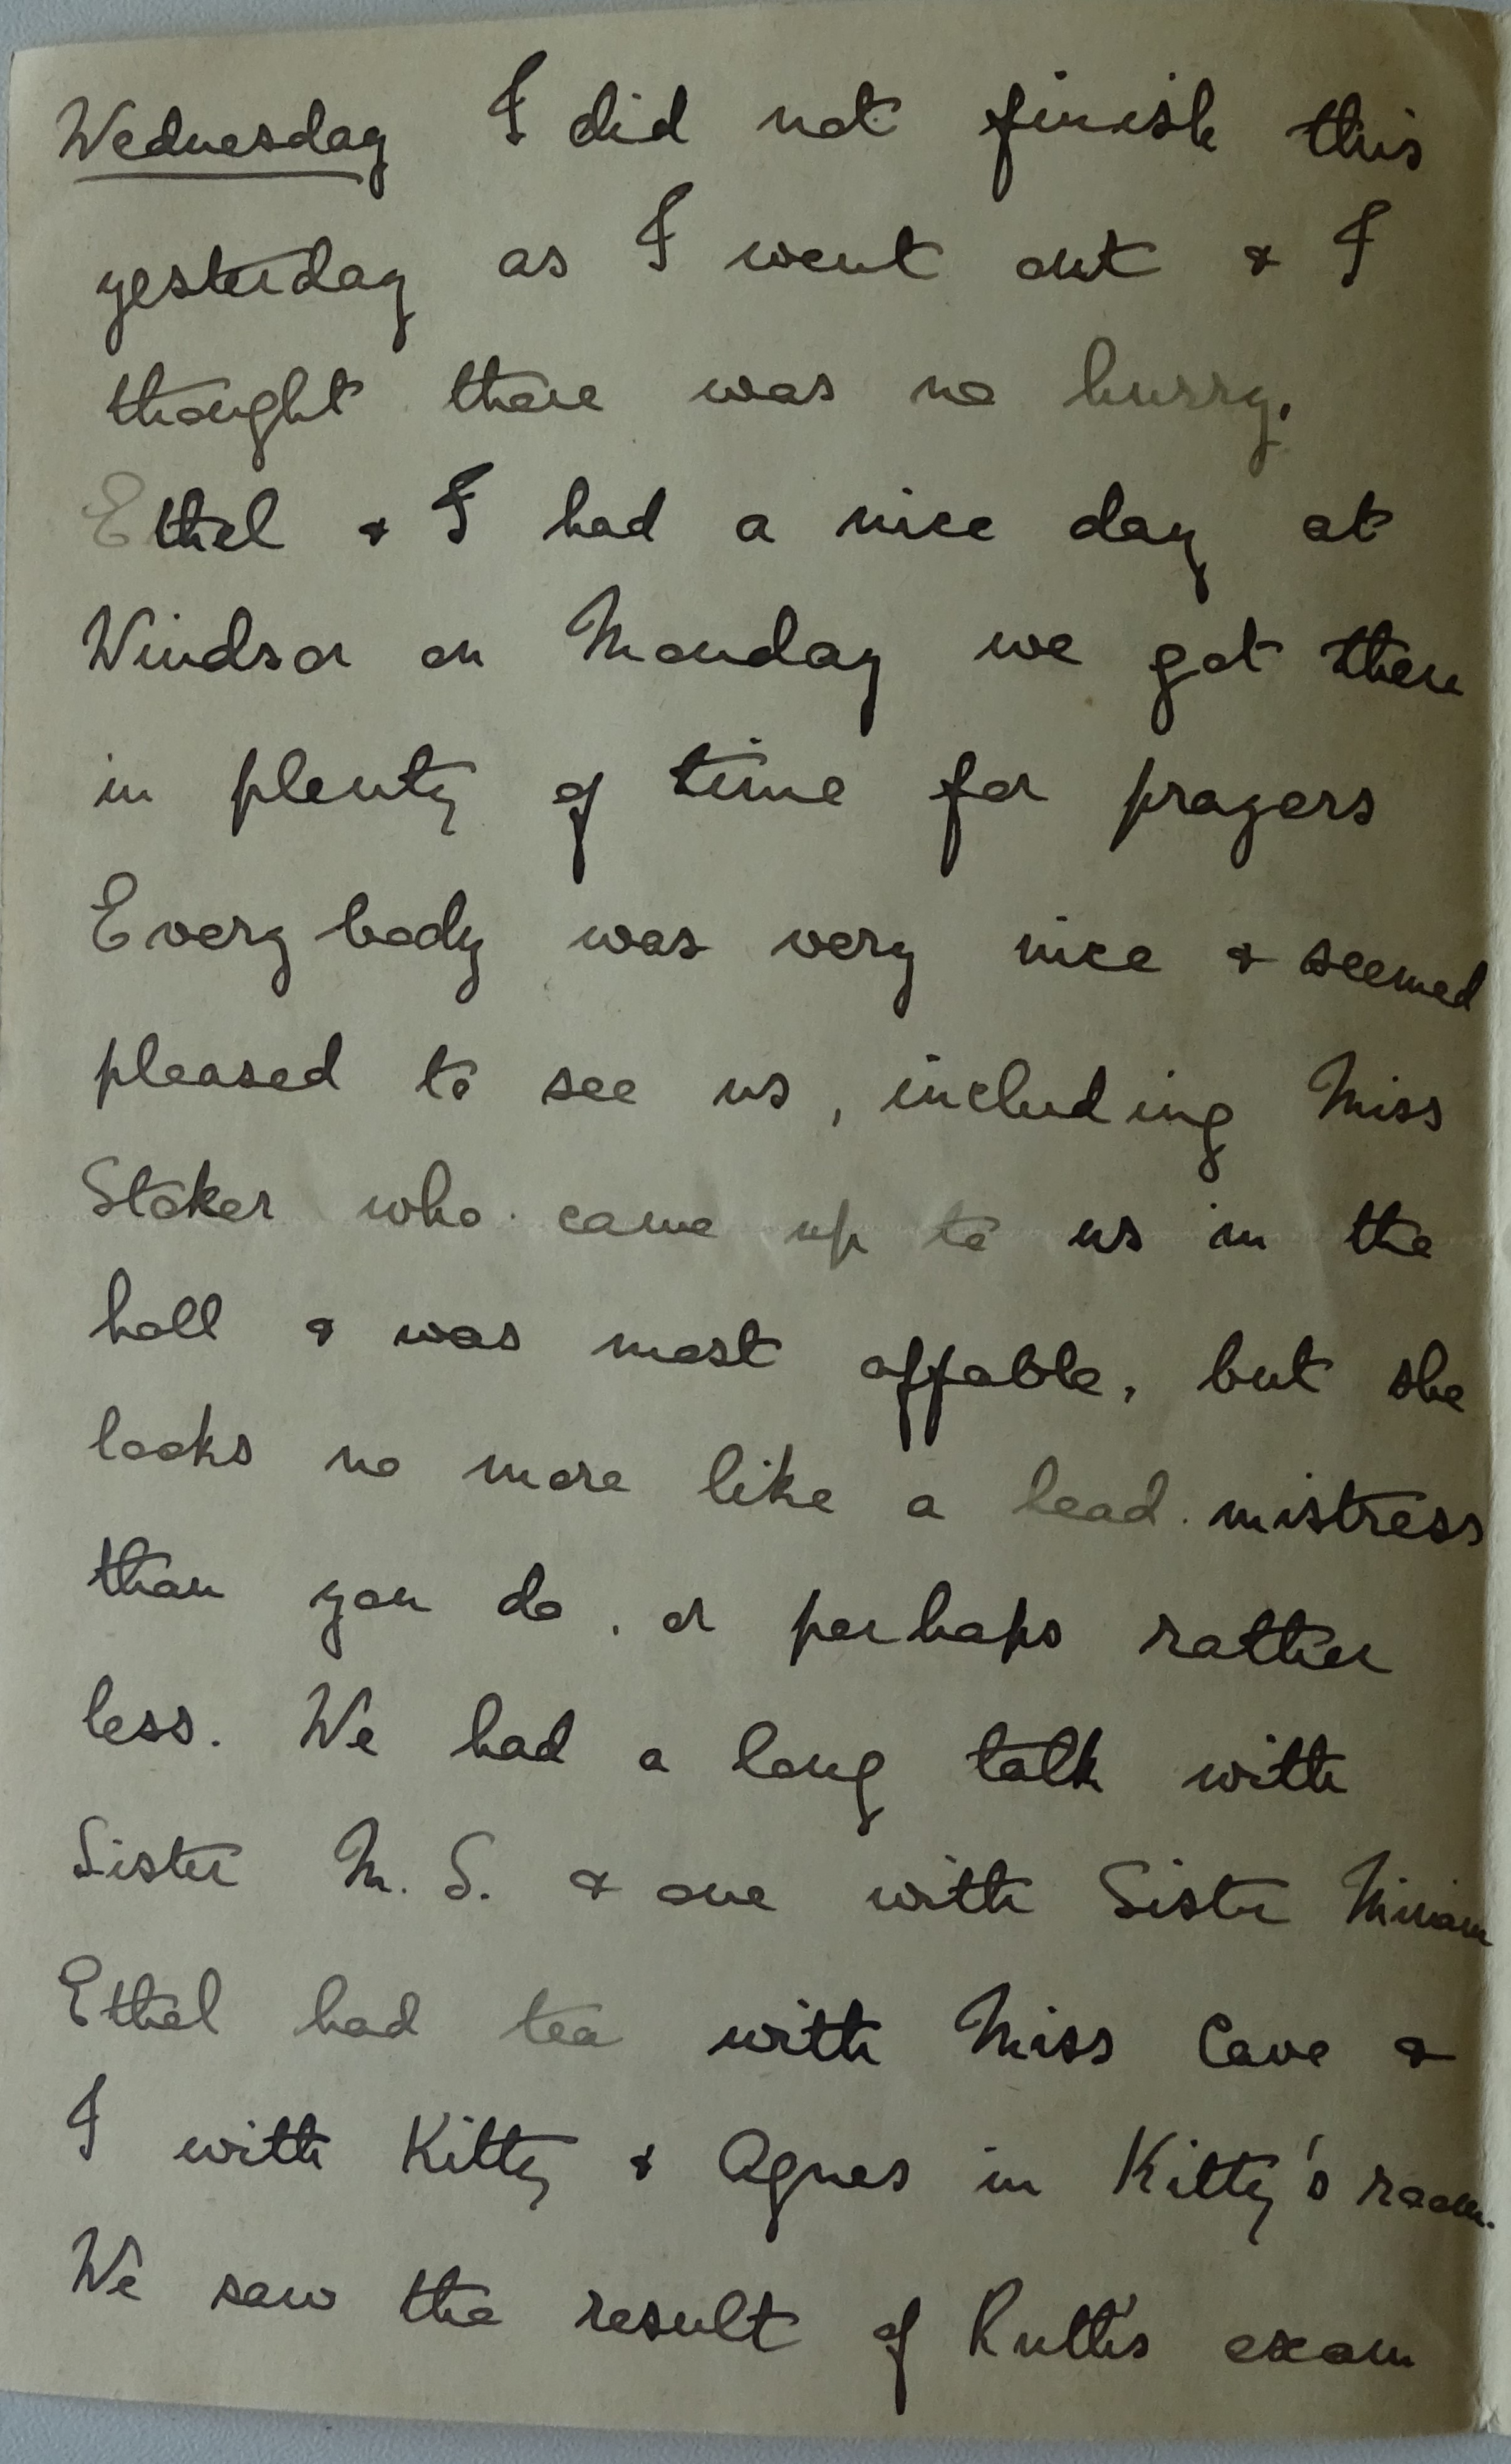 Wednesday I did not finish this
yesterday as I went out & I
thought there was no hurry.
Ethel & I had a nice day at
Windsor on Monday we got there
in plenty of time for prayers
Every body was very nice & seemed
pleased to see us, including Miss
Stoker who came up to us in the
hall & was most affable, but she
looks no more like a head mistress
than you do, or perhaps rather
less. We had a long talk with
Sister M. S. & one with Sister Miriam
Ethel had tea with Miss Cave &
I with Kitty & Agnes in Kitty's room.
We saw the result of Ruth's exam